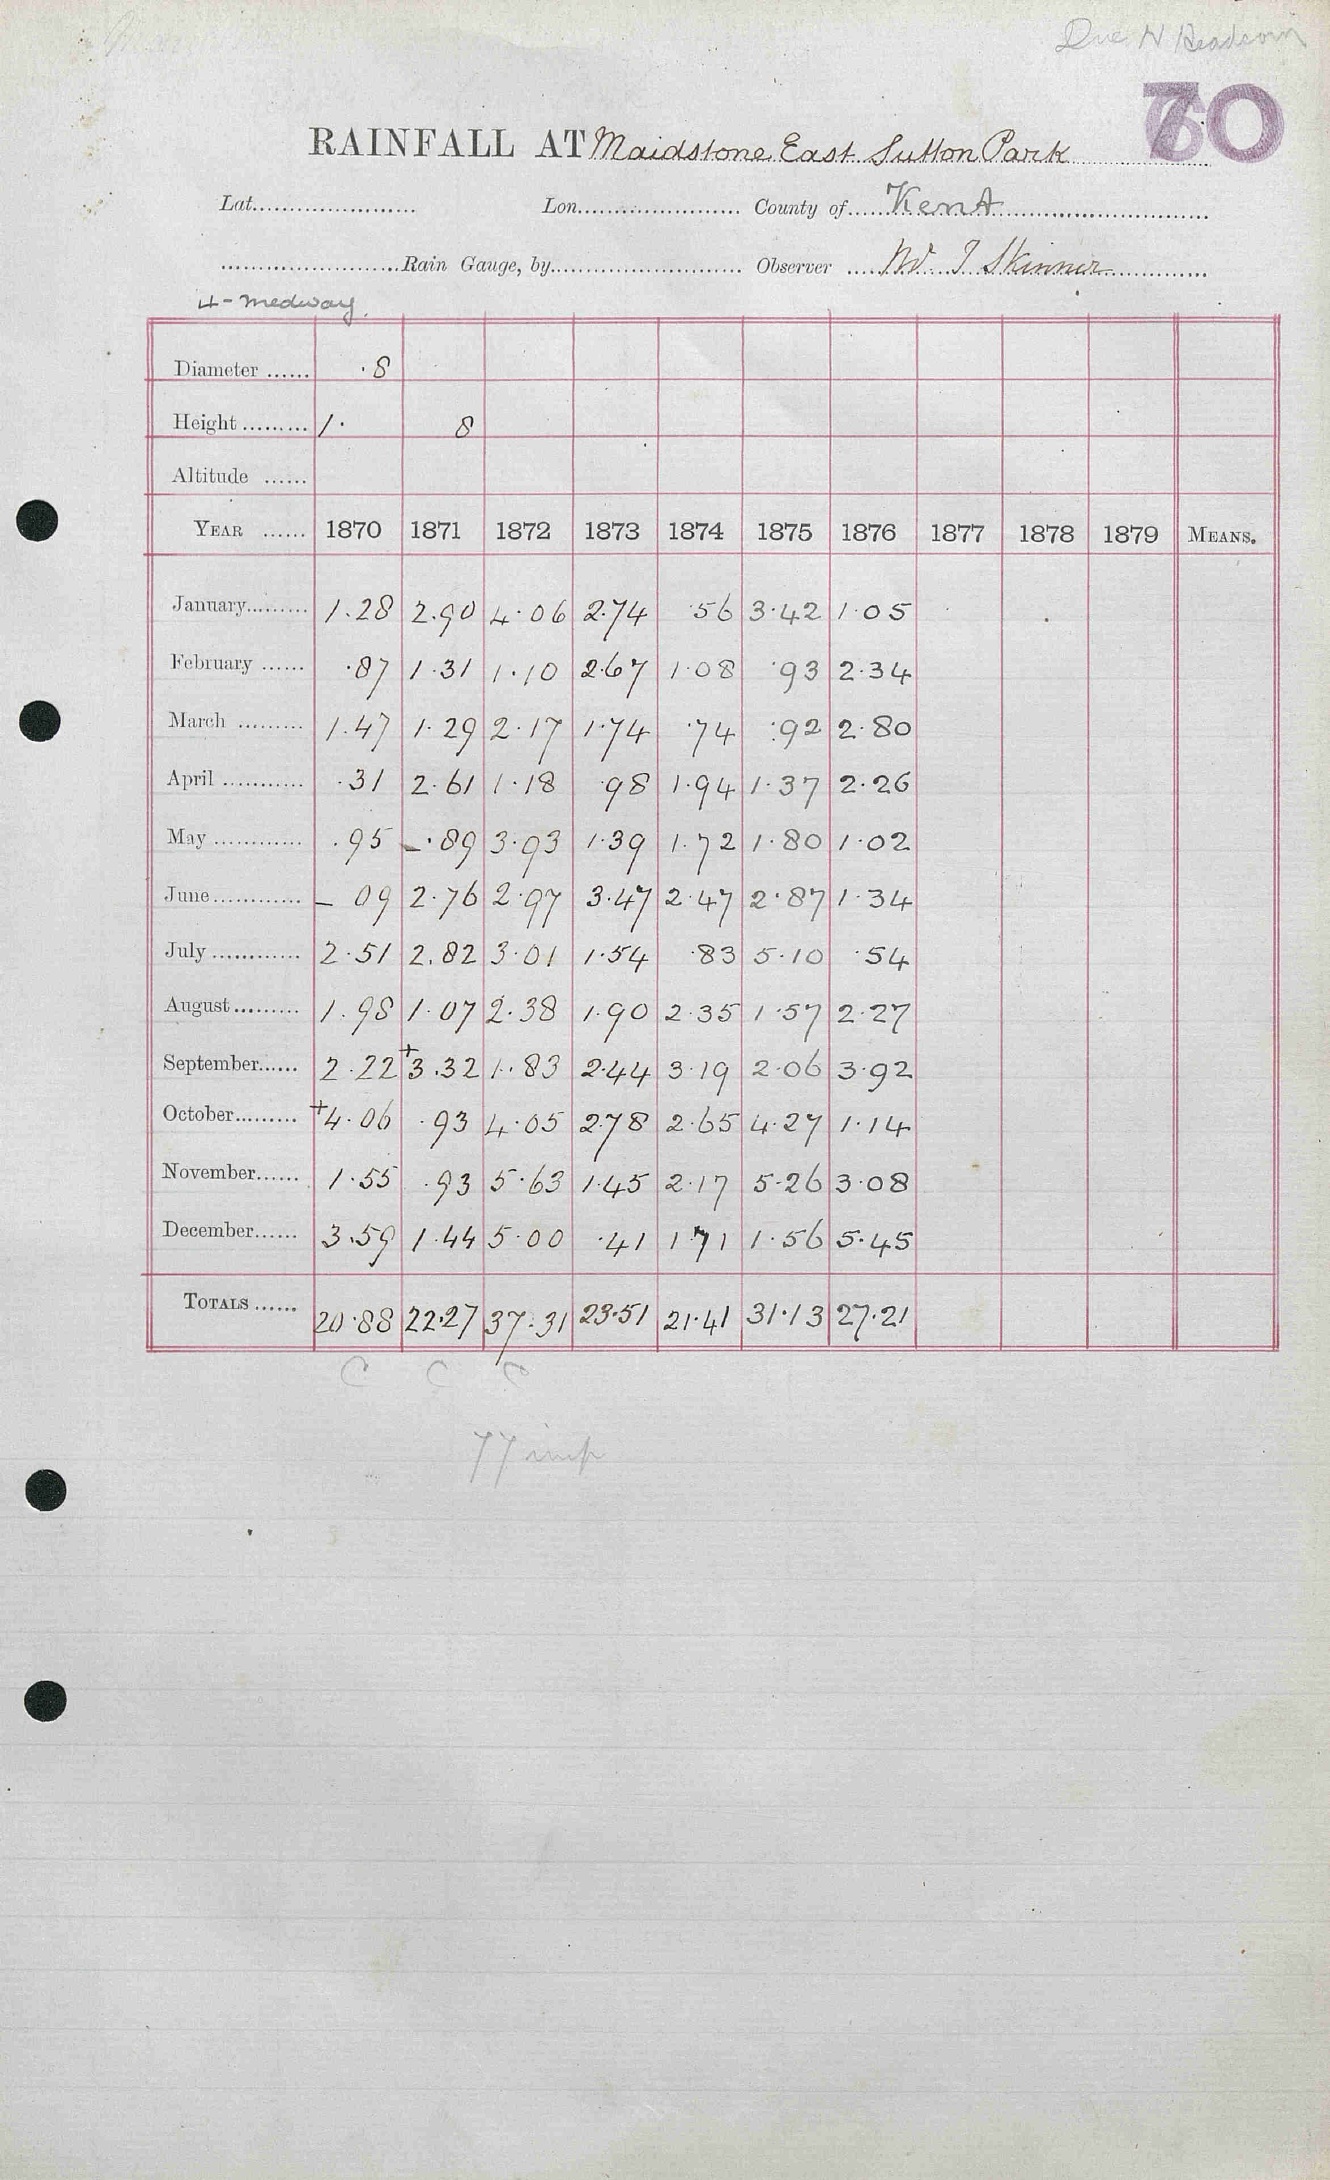 Due N Headcorn
70
RAINFALL AT Maidstone East Sutton Park
Lat. Lon. County of Kent
Rain Gauge, by Observer W I Skinner
4-medway.
Diameter ...... .8
Height ......... 1. 8
Altitude ......
YEAR ...... 1870 1871 1872 1873 1874 1875 1876 1877 1878 1879 MEANS.
January......... 1.28 2.90 4.06 2.74 .56 3.42 1.05
February ...... .87 1.31 1.10 2.67 1.08 .93 2.34
March ......... 1.47 1.29 2.17 1.74 .74 .92 2.80
April ........... .31 2.61 1.18 .98 1.94 1.37 2.26
May ............ .95 -.89 3.93 1.39 1.72 1.80 1.02
June............ - 09 2.76 2.97 3.47 2.47 2.87 1.34
July ............ 2.51 2.82 3.01 1.54 .83 5.10 .54
August......... 1.98 1.07 2.38 1.90 2.35 1.57 2.27
September...... 2.22 +3.32 1.83 2.44 3.19 2.06 3.92
October......... +4.06 .93 4.05 2.78 2.65 4.27 1.14
November...... 1.55 .93 5.63 1.45 2.17 5.26 3.08
December...... 3.59 1.44 5.00 .41 1.71 1.56 5.45
TOTALS ...... 20.88 22.27 37.31 23.51 21.41 31.13 27.21
C C C
77